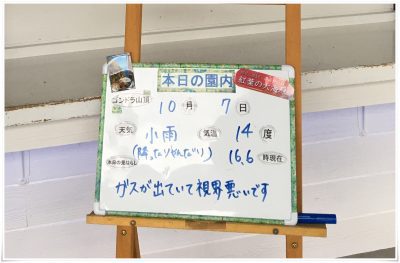 本日の園内
紅葉の
ゴンドラ山頂 10月 7日
天気 小雨 気温 14度
(降ったりやんだり) 16.6 時現在
ガスが出ていて視界悪いです